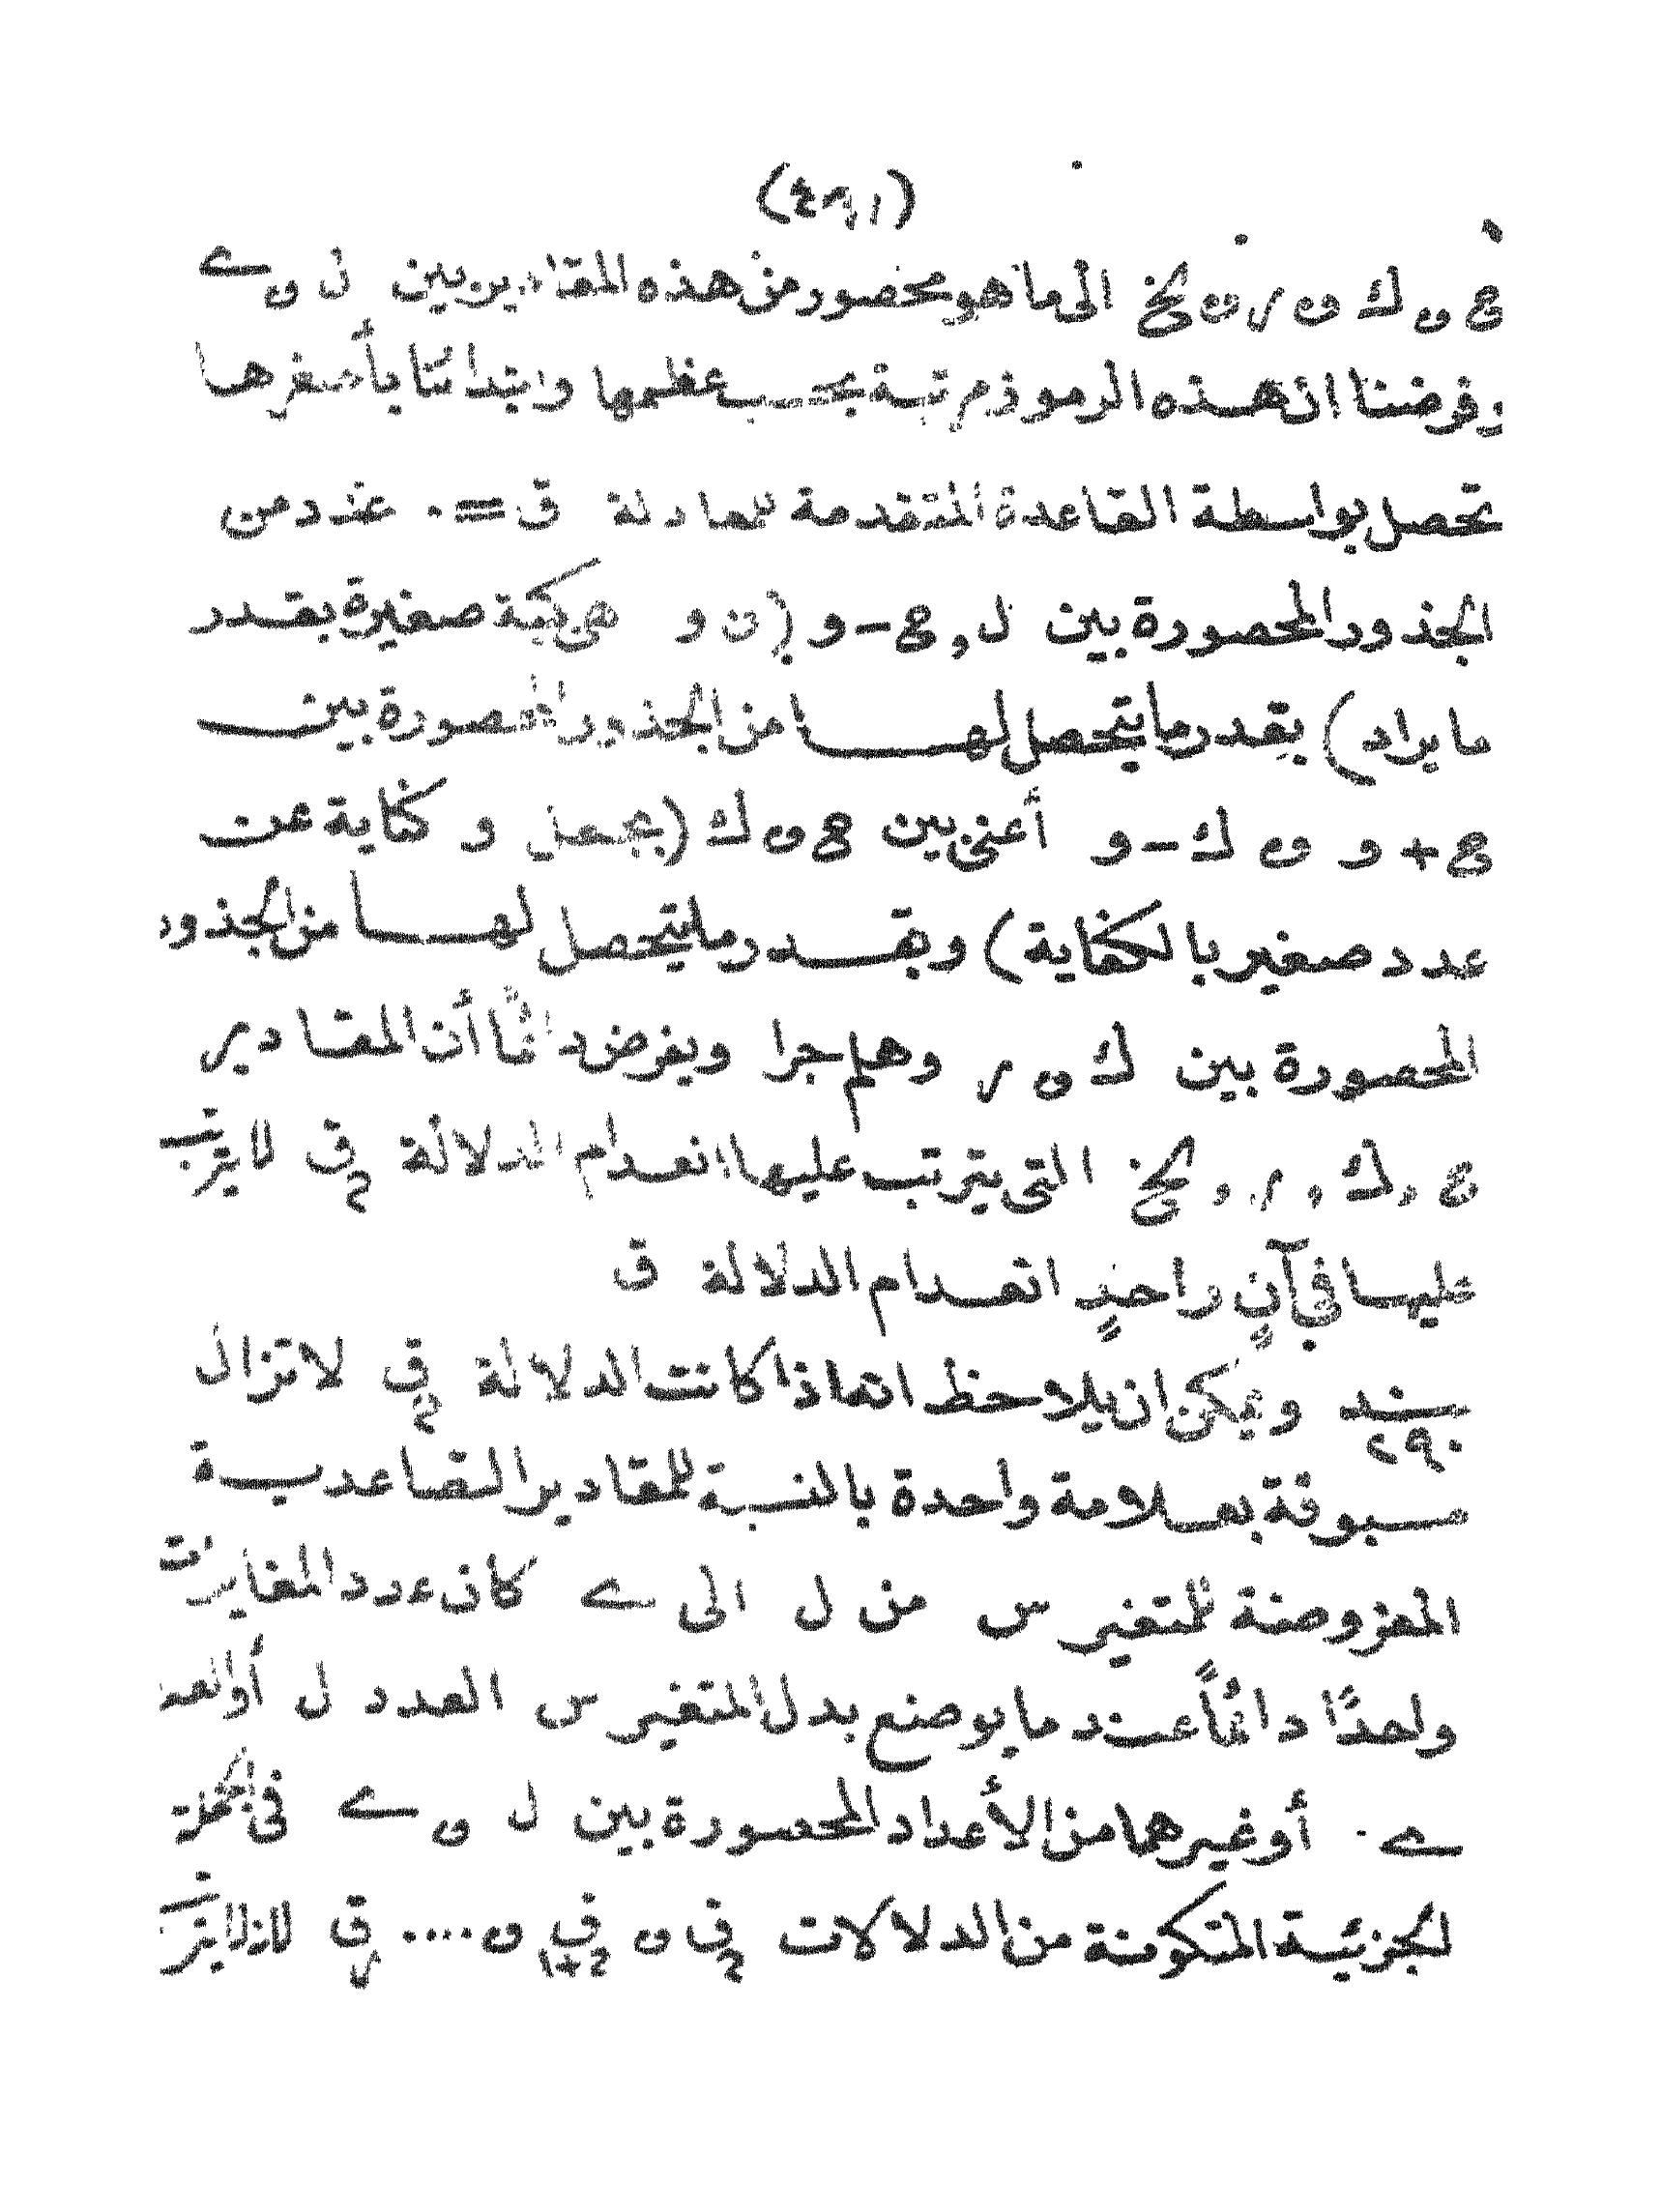 ع و ك و ر و الخ الى ما هو محصور من هذه المقادير بين ل و ى
وفرضنا ان هذه الرموز مرتبة بحسب عظمها وابتدائنا بأصغرها
تحصل بواسطة القاعدة المتقدمة للمعادلة ق = ٠ عدد من
الجذور المحصورة بين ل و ع - و (ن و هى كمية صغيرة بقدر
ما يراد) بقدر ما يتحصل لها من الجذور المحصورة بين
ع + و و ك - و أعنى بين ع و ك (بجعل و كناية عن
عدد صغير بالكفاية) وبقدر ما يتحصل لها من الجذور
المحصورة بين ك و ر وهلم جرا ويفرض دائما أن المقادير
ع و ك و ر و الخ التى يترتب عليها انعدام الدلالة ق٢ لا يترتب
عليها فى آنٍ واحدٍ انعدام الدلالة ق
بند ويمكن ان يلاحظ انه اذا كانت الدلالة ق٢ لا تزال
٢٩٠
مسبوقة بعلامة واحدة بالنسبة للمقادير التصاعدية
المفروضة للمتغير س من ل الى ى كان عدد المغايرات
واحدًا دائمًا عند ما يوضع بدل المتغير س العدد ل أو العدد
ى أو غيرهما من الأعداد المحصورة بين ل و ى فى الجملة
الجزئية المتكونة من الدلالات ق٢ و ق٢+١ و .... قر لانه لا يتر